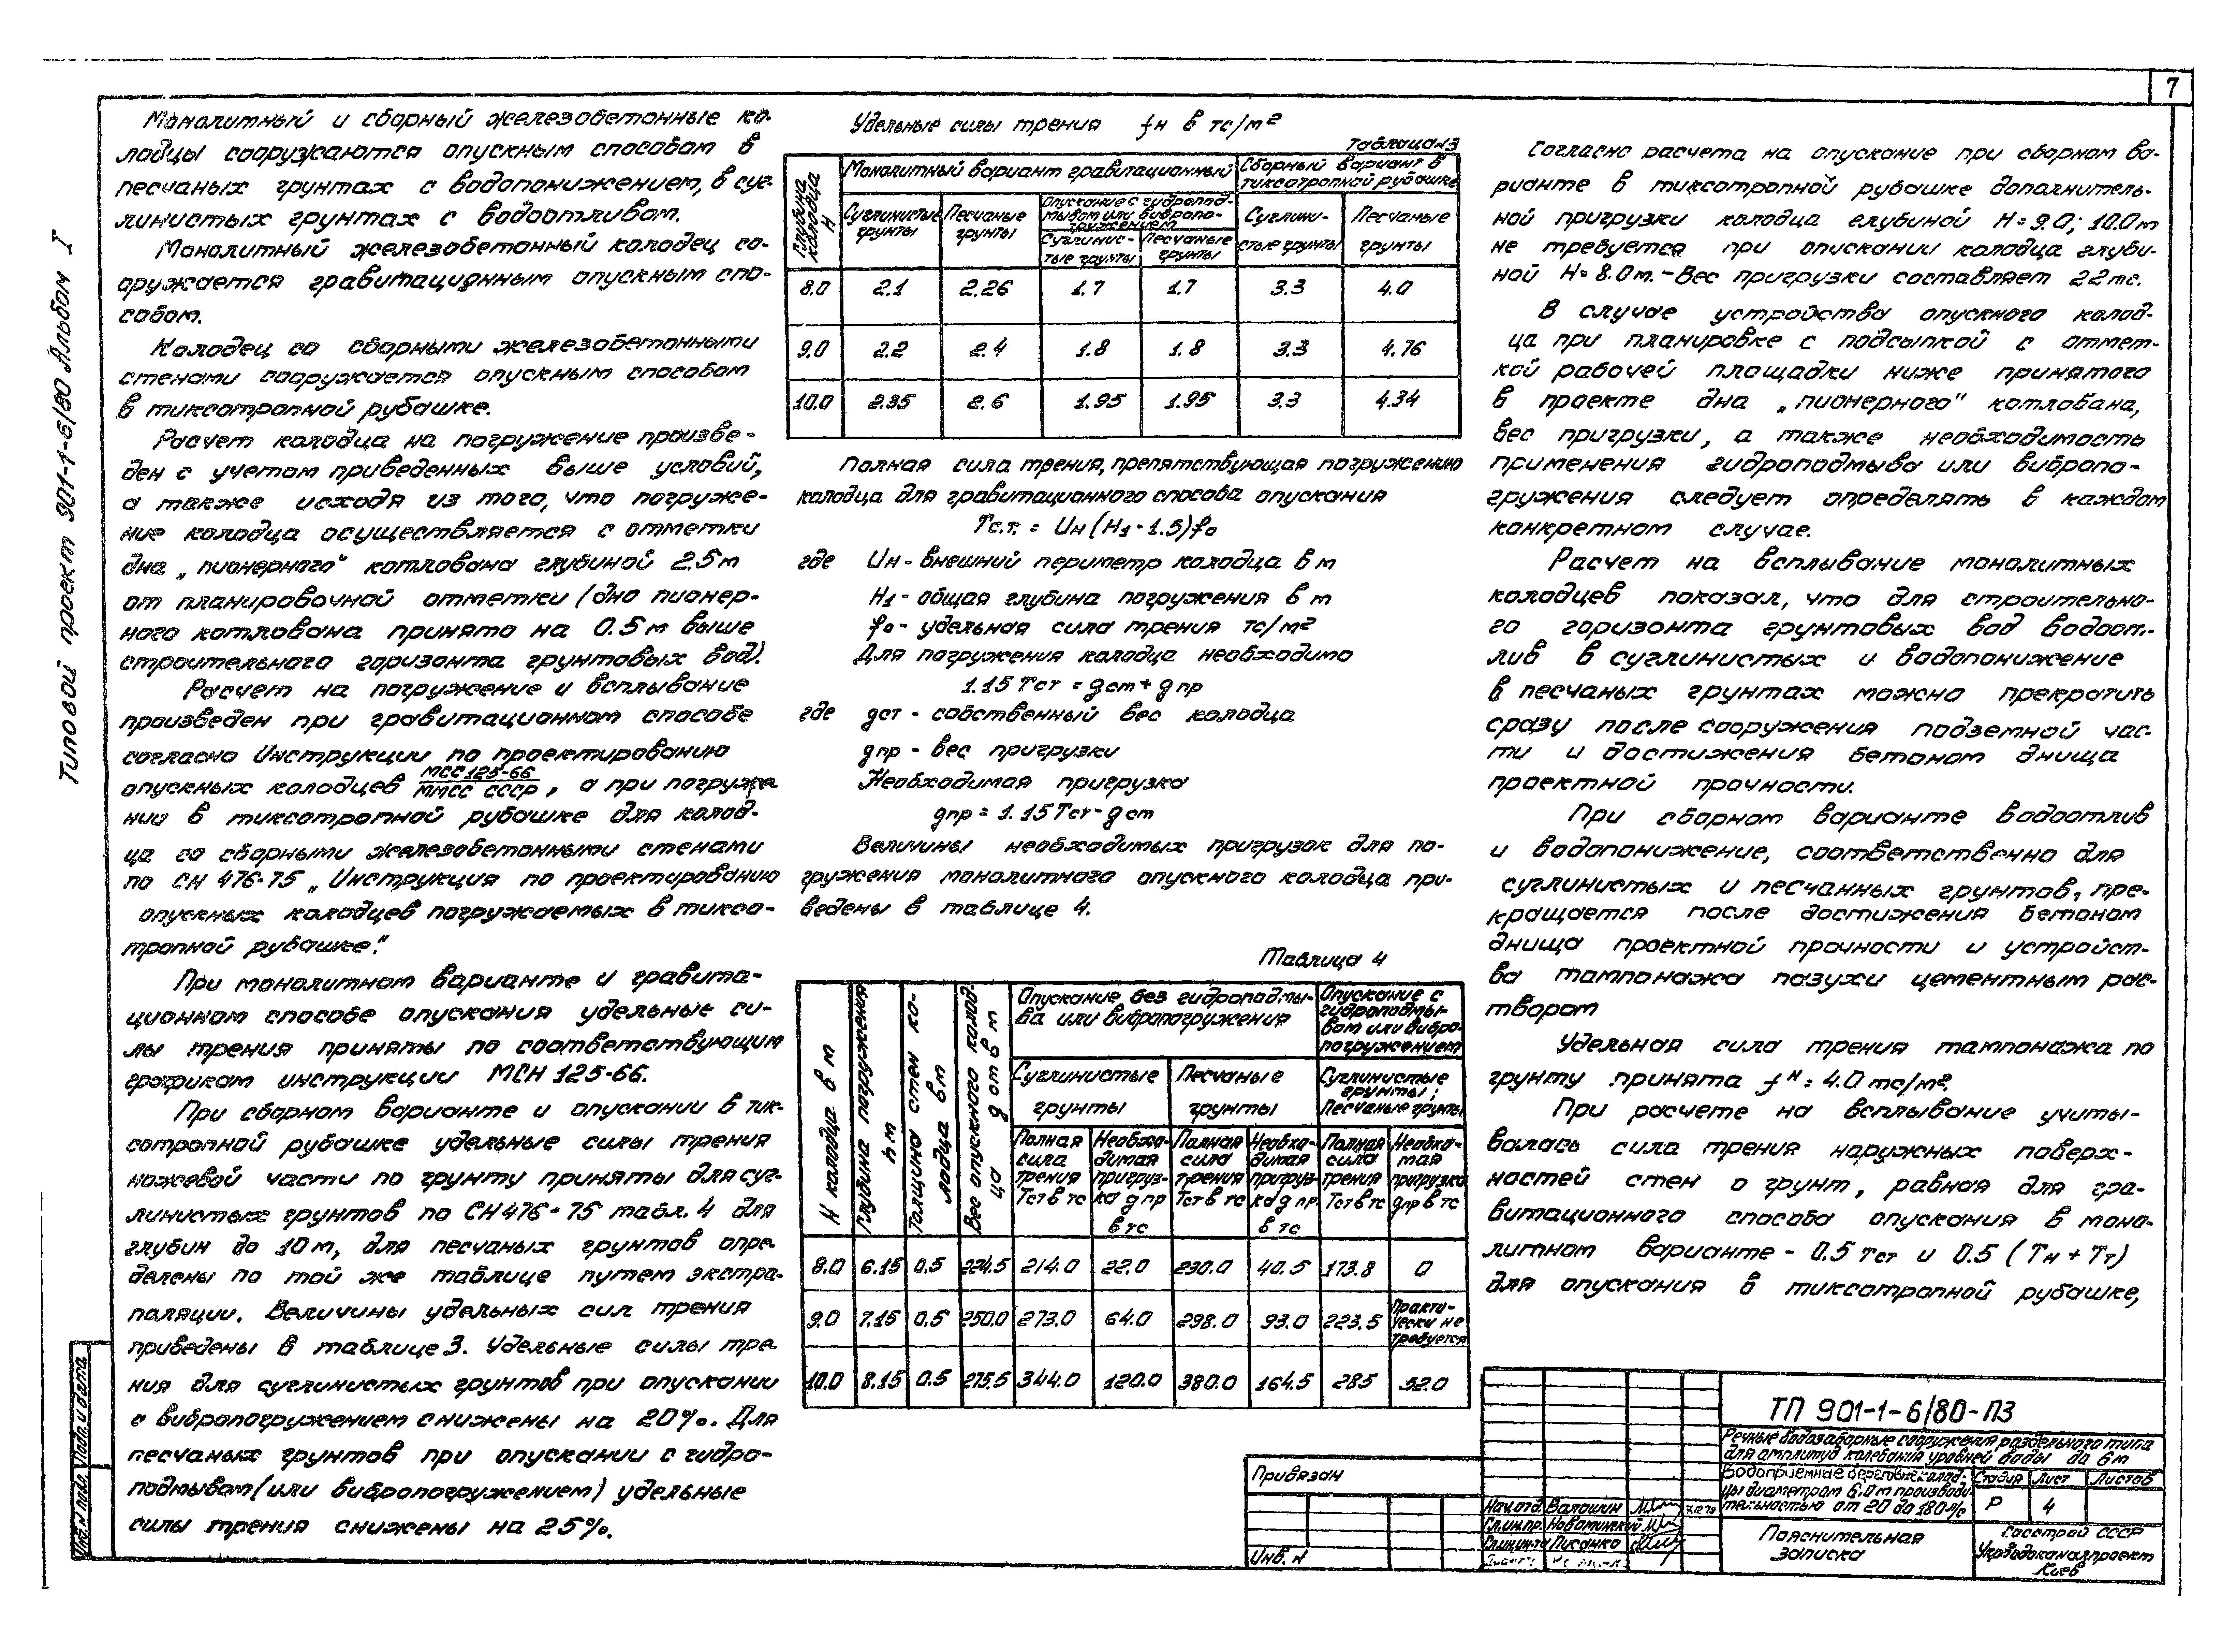 7
Типовой проект 901-1-6/80 Альбом I
Монолитный и сборный железобетонные ко-
лодцы сооружаются опускным способом в
песчаных грунтах с водопонижением, в суг-
линистых грунтах с водоотливом.
Монолитный железобетонный колодец со-
оружается гравитационным опускным спо-
собом.
Колодец со сборными железобетонными
стенами сооружается опускным способом
в тиксотропной рубашке.
Расчет колодца на погружение произве-
ден с учетом приведенных выше условий,
а также исходя из того, что погруже-
ние колодца осуществляется с отметки
дна „пионерного" котлована глубиной 2.5м
от планировочной отметки (дно пионер-
ного котлована принято на 0.5м выше
строительного горизонта грунтовых вод).
Расчет на погружение и всплывание
произведен при гравитационном способе
согласно Инструкции по проектированию
опускных колодцев МСС125-66/ММСС СССР, а при погруже
нии в тиксотропной рубашке для колод-
ца со сборными железобетонными стенами
по СН 476-75 „Инструкция по проектированию
опускных колодцев погружаемых в тиксо-
тропной рубашке."
При монолитном варианте и гравита-
ционном способе опускания удельные си-
лы трения приняты по соответствующим
графикам инструкции МСН 125-66.
При сборном варианте и опускании в тик-
сотропной рубашке удельные силы трения
ножевой части по грунту приняты для суг-
линистых грунтов по СН476-75 табл. 4 для
глубин до 10м, для песчаных грунтов опре-
делены по той же таблице путем экстра-
поляции. Величины удельных сил трения
приведены в таблице 3. Удельные силы тре-
ния для суглинистых грунтов при опускании
с вибропогружением снижены на 20%. Для
песчаных грунтов при опускании с гидро-
подмывом (или вибропогружением) удельные
силы трения снижены на 25%.
Удельные силы трения fн в тс/м²
Таблица 3
Глубина колодца Н
Монолитный вариант гравитационный
Сборный вариант в тиксотропной рубашке
Суглинистые грунты
Песчаные грунты
Опускание с гидропод-
мывом или вибропо-
гружением
Суглинис-
тые грунты
Песчаные грунты
Суглини-
стые грунты
Песчаные грунты
8.0 2.1 2.26 1.7 1.7 3.3 4.0
9.0 2.2 2.4 1.8 1.8 3.3 4.76
10.0 2.35 2.6 1.95 1.95 3.3 4.34
Полная сила трения, препятствующая погружению
колодца для гравитационного способа опускания
Тс.т. = Uн (H1 - 1.5) fо
где Uн - внешний периметр колодца в м
H1 - общая глубина погружения в м
fо - удельная сила трения тс/м²
Для погружения колодца необходимо
1.15 Тст = gст + gпр
где gст - собственный вес колодца
gпр - вес пригрузки
Необходимая пригрузка
gпр = 1.15 Тст - gст
Величины необходимых пригрузок для по-
гружения монолитного опускного колодца при-
ведены в таблице 4.
Таблица 4
Н колодца в м
Глубина погружения h м
Толщина стен ко-
лодца в м
Вес опускного колод-
ца g от в т
Опускание без гидроподмы-
ва или вибропогружения
Опускание с
гидроподмы-
вом или вибро-
погружением
Суглинистые грунты
Песчаные грунты
Суглинистые
грунты;
Песчаные грунты
Полная сила трения Тст в тс
Необхо-
димая
пригруз-
ка gпр
в тс
Полная сила трения Тст в тс
Необхо-
димая
пригруз-
ка gпр
в тс
Полная сила трения Тст в тс
Необхо-
мая
пригрузка
gпр в тс
8.0 6.15 0.5 224.5 214.0 22.0 230.0 40.5 173.8 0
9.0 7.15 0.5 250.0 273.0 64.0 298.0 93.0 223.5 Практи-
чески не
требуется
10.0 8.15 0.5 275.5 344.0 120.0 380.0 164.5 285 52.0
Согласно расчета на опускание при сборном ва-
рианте в тиксотропной рубашке дополнитель-
ной пригрузки колодца глубиной Н = 9.0; 10.0м
не требуется при опускании колодца глуби-
ной Н = 8.0м. - Вес пригрузки составляет 22тс.
В случае устройства опускного колод-
ца при планировке с подсыпкой с отмет-
кой рабочей площадки ниже принятого
в проекте дна „пионерного" котлована,
вес пригрузки, а также необходимость
применения гидроподмыва или вибропо-
гружения следует определять в каждом
конкретном случае.
Расчет на всплывание монолитных
колодцев показал, что для строительно-
го горизонта грунтовых вод водоот-
лив в суглинистых и водопонижение
в песчаных грунтах можно прекратить
сразу после сооружения подземной час-
ти и достижения бетоном днища
проектной прочности.
При сборном варианте водоотлив
и водопонижение, соответственно для
суглинистых и песчанных грунтов, пре-
кращается после достижения бетоном
днища проектной прочности и устройст-
ва тампонажа пазухи цементным рас-
твором
Удельная сила трения тампонажа по
грунту принята fн = 4.0 тс/м².
При расчете на всплывание учиты-
валась сила трения наружных поверх-
ностей стен о грунт, равная для гра-
витационного способа опускания в моно-
литном варианте - 0.5 Тст и 0.5 (Тн + Тт)
для опускания в тиксотропной рубашке,
Привязан
Инв. №
Нач.отд. Волошин
Гл.инж.пр. Новоминский
Гл.инж.то Писанко
ТП 901-1-6/80-ПЗ
Речные водозаборные сооружения раздельного типа
для амплитуд колебания уровней воды до 6м
Водоприемные береговые колод-
цы диаметром 6.0м производи-
тельностью от 20 до 180 л/с
Стадия Лист Листов
Р 4
Пояснительная
записка
Госстрой СССР
Укрводоканалпроект
Киев
Инв. № подл. Подп. и дата